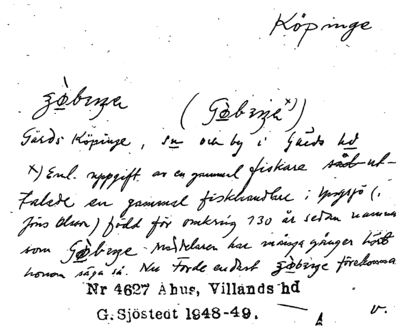 Köpinge
zø̀benga (Gø̀benga x))
Gärds Köpinge, sn och by i Gärds hd
x) Enl. uppgift av en gammal fiskare ut-
talade en gammal fiskhandlare i
Jöns Olson) född för omkring 130 år sedan namnet
som Gø̀benge. Meddelaren har många gånger hört
honom säga så. Nu torde endast zø̀benge förekomma
Nr 4627 Åhus, Villands hd
G. Sjöstedt 1948-49. A v.